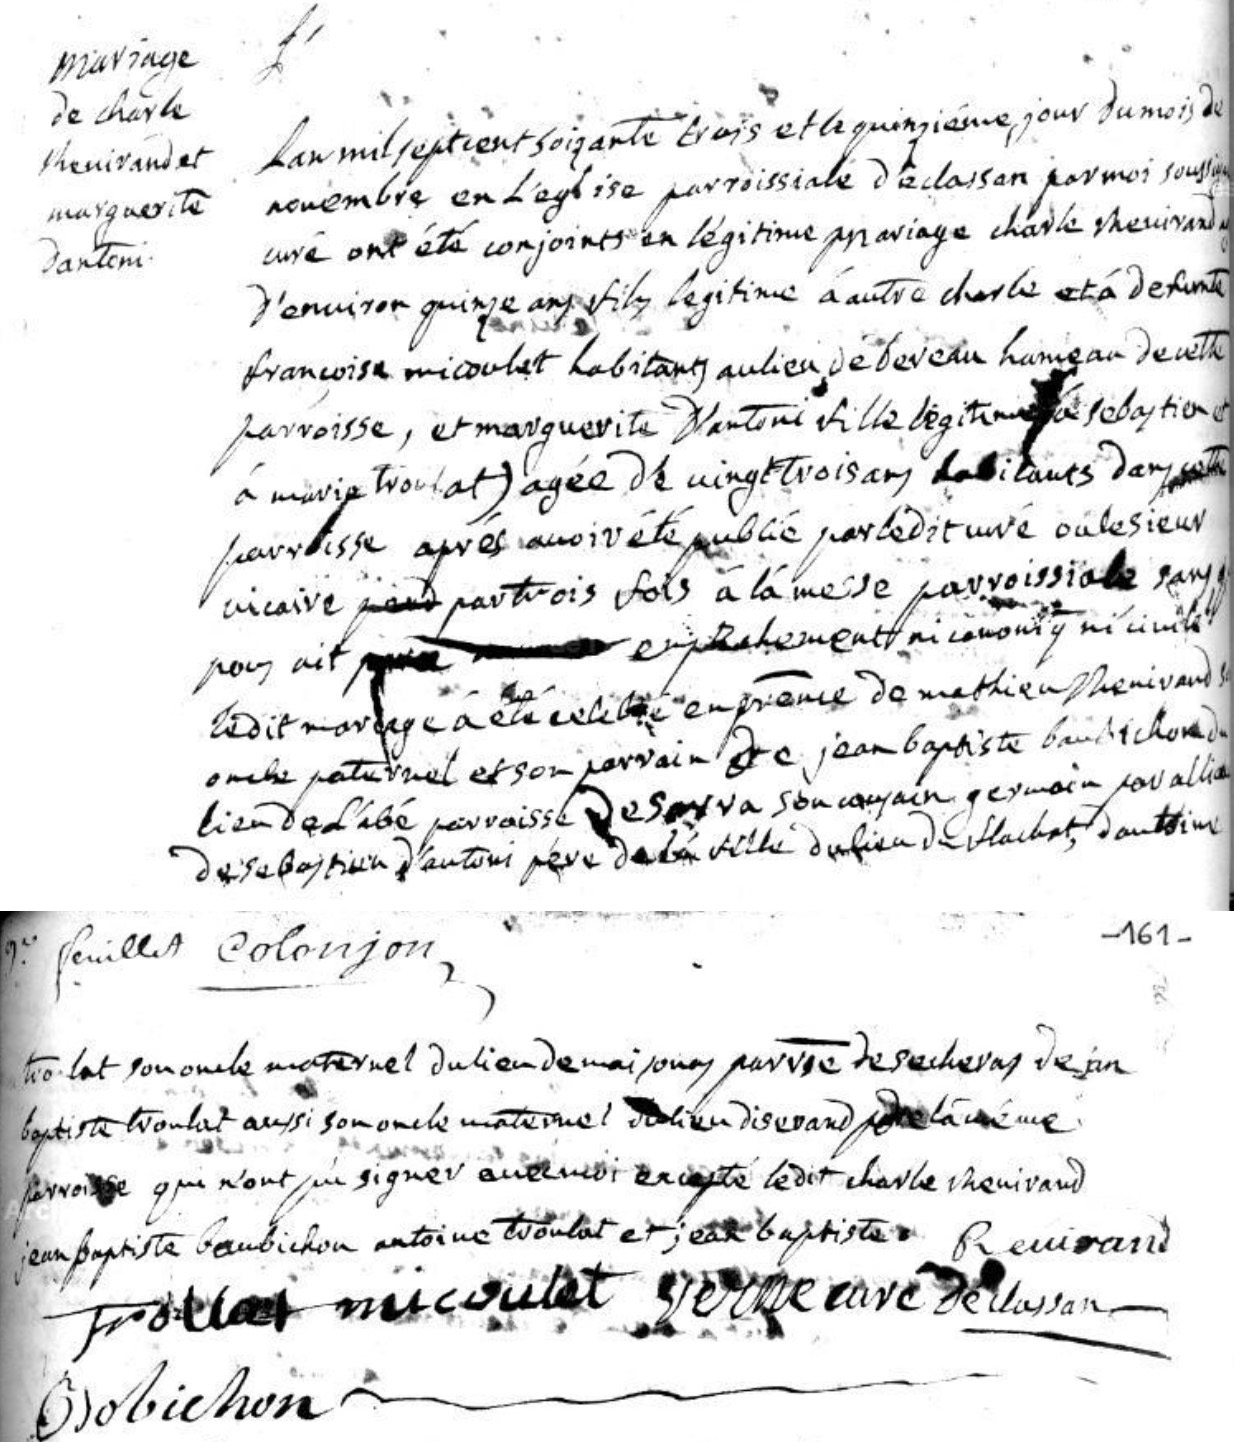 mariage
de charle
rhenirand et
marguerite
dantoni.
L'an mil sept cent soizante trois et le quinziéme jour du mois de
novembre en L'église parroissiale d'éclassan par moi soussigné
curé ont été conjoints en légitime mariage charle rhenirand
d'environ quinze ans fils legitime à autre charle et à defunte
francoise micoulet habitants au lieu de beveau hameau de cette
parroisse, et marguerite D'antoni fille légitime à sebastien et
à marie troulat) agée de vingt trois ans habitants dans cette
parroisse aprés avoir été publié par ledit curé ou le sieur
vicaire par trois fois à la messe parroissiale sans
pous ait empechement ni canoniq ni civile
ledit mariage à été celebré en prénce de mathieu rhenirand
oncle paternel et son parrain de jean baptiste baubichon du
lieu de L'abé parroisse de sarra son cousin germain par
de sebastien d'antoni pére de la fille du lieu du flachat, d'antoine
feuillet Colonjon
-161-
troulat son oncle maternel du lieu de maisonas parrsse de secheras de jan
baptiste troulat aussi son oncle maternel du lieu diserand de la méme
parroisse qui n'ont pu signer avec moi excepté ledit charle rhenirand
jean baptiste baubichon antoine troulat et jean baptiste. Renirand
Trollat micoulet curé d'éclassan
Bobichon